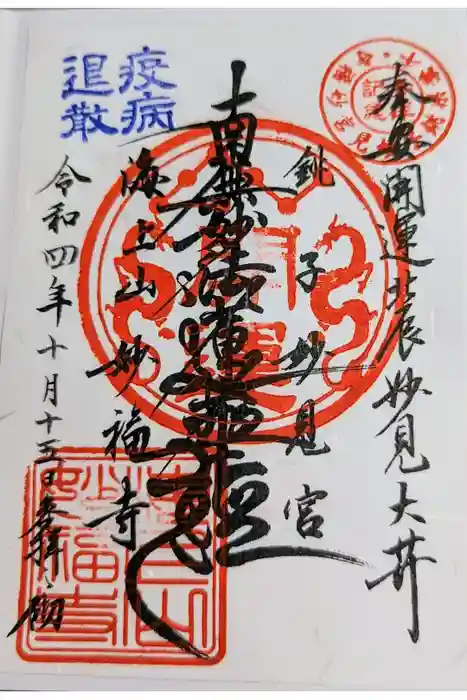 奉安開運北辰妙見大井
銚子妙見宮
南無妙法蓮華経
海上山妙福寺
令和四年十月十五日奉拝
疫病
退散
開運
海上山
妙福寺